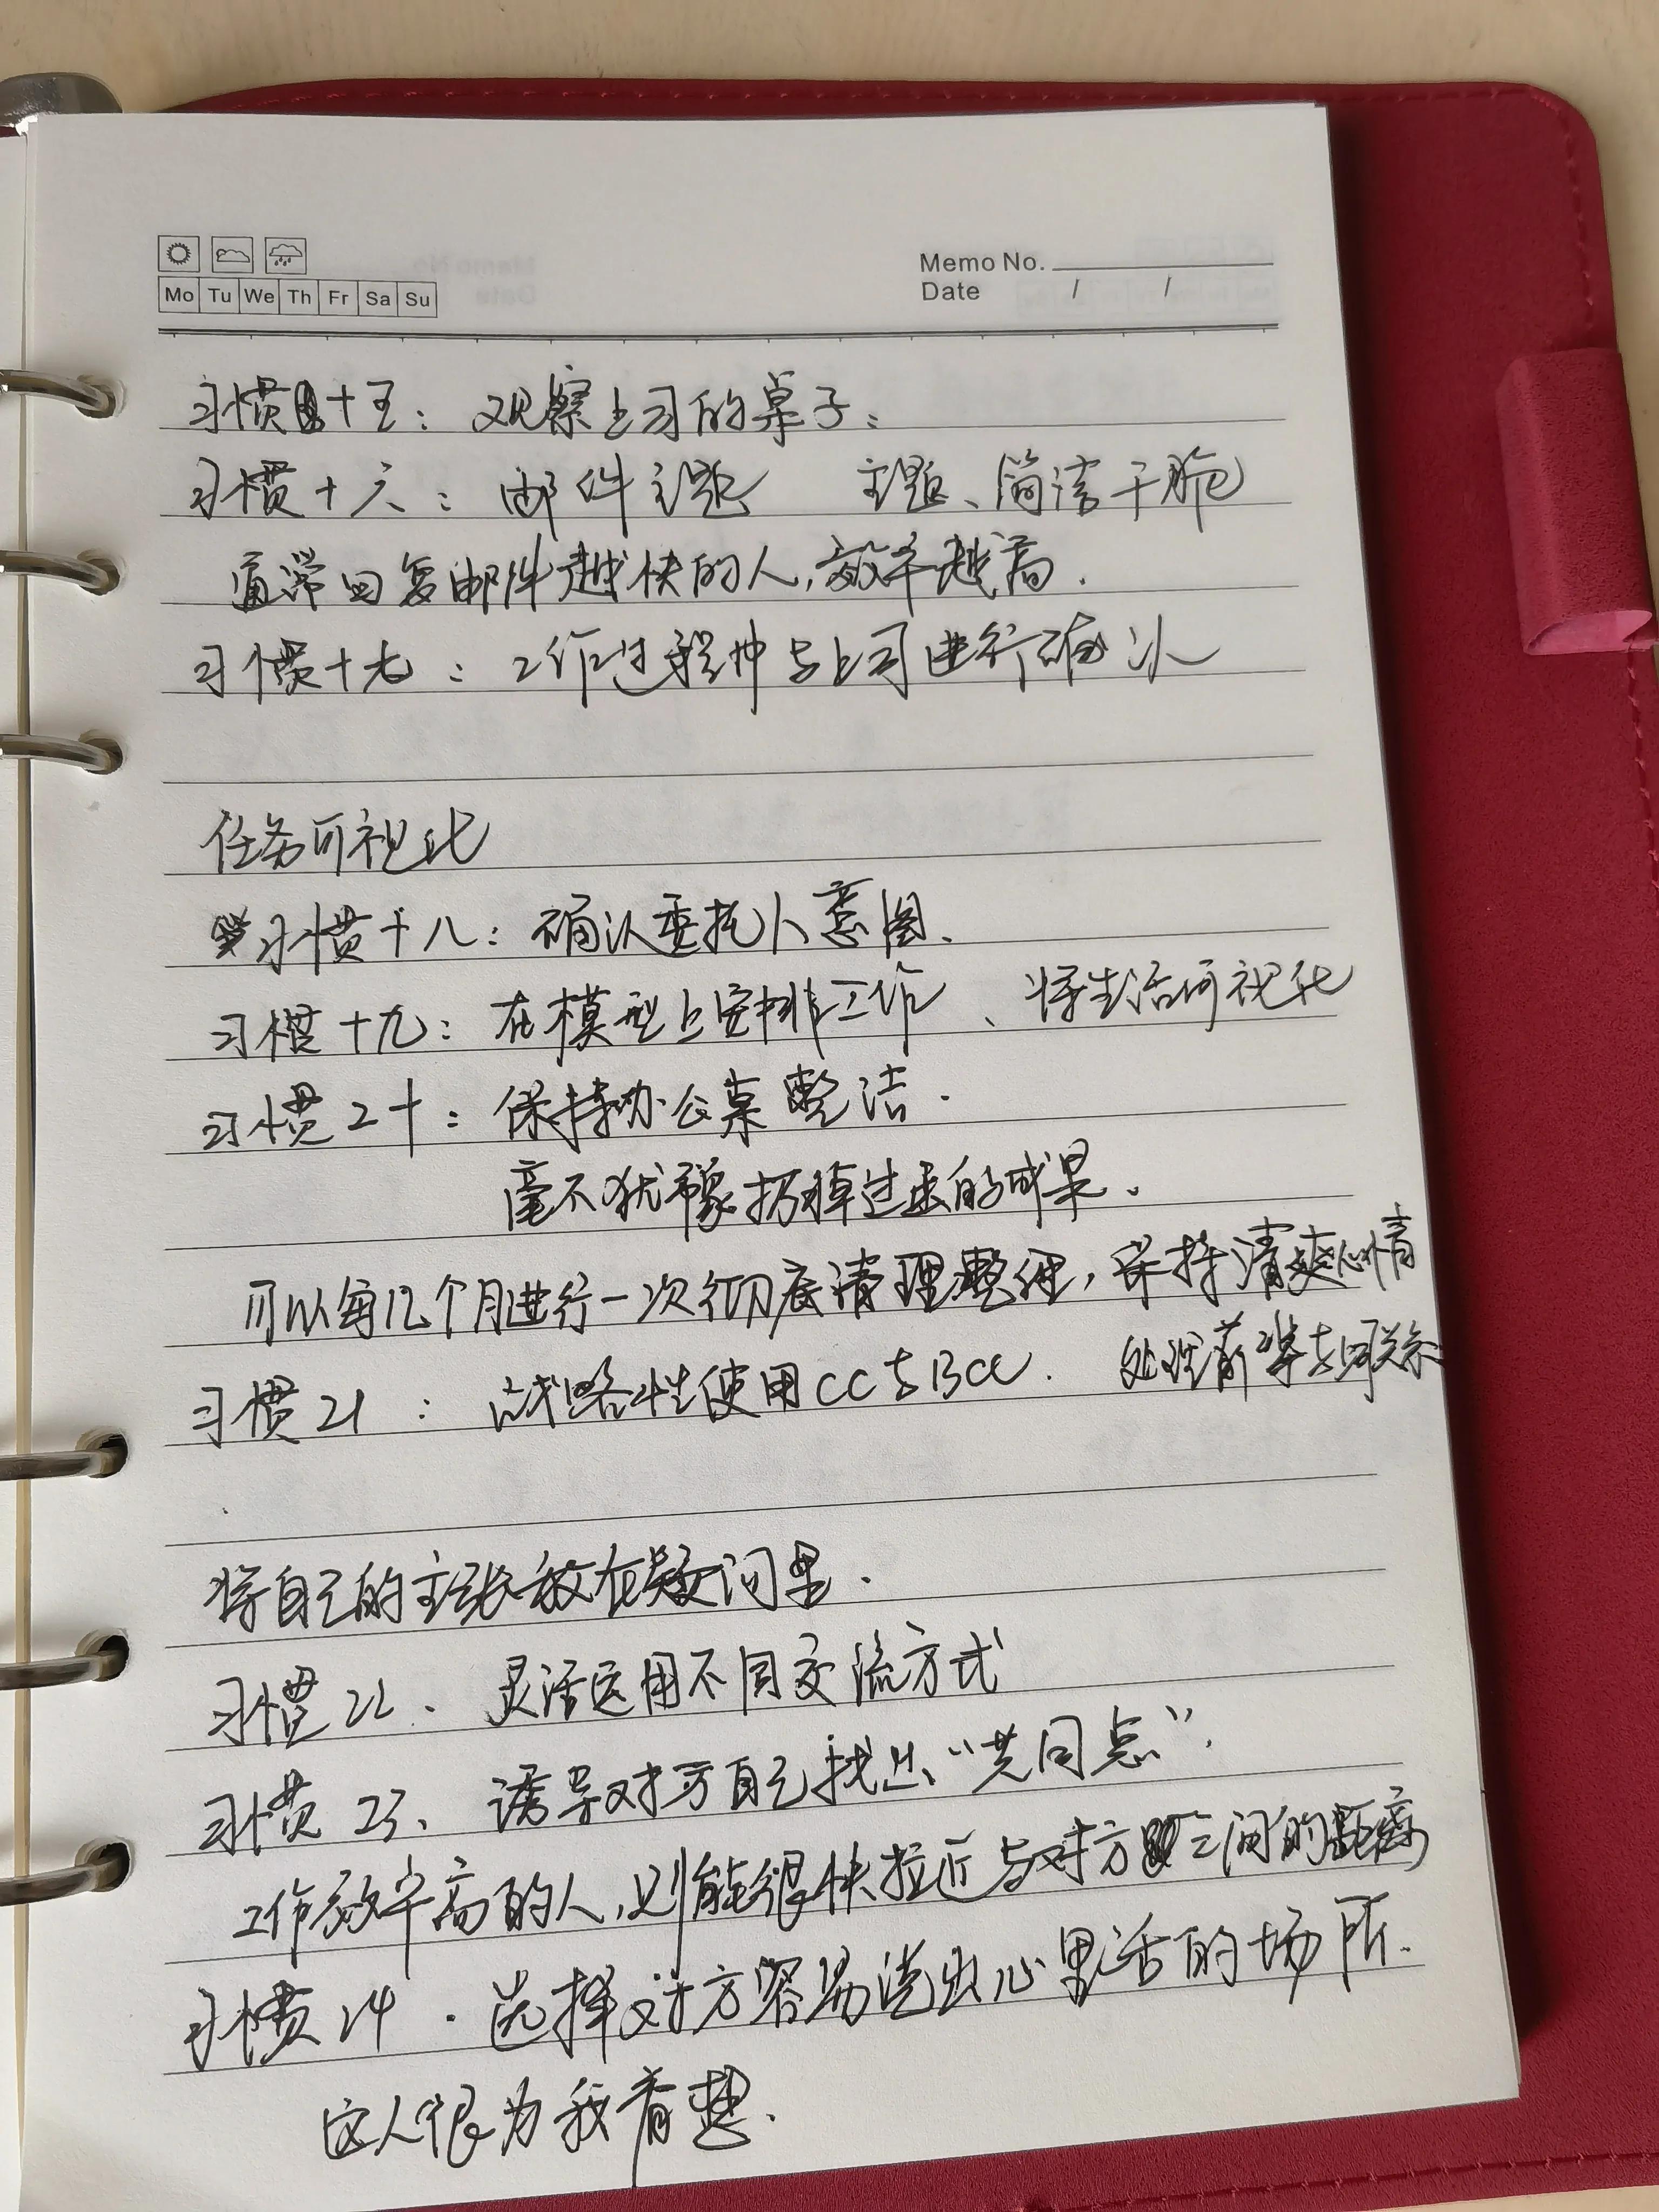 Memo No.
Mo Tu We Th Fr Sa Su
Date / /
习惯十五：观察上司的桌子：
习惯十六：邮件主题 主题、简洁干脆
通常回复邮件越快的人，效率越高.
习惯十七：工作过程中与上司进行确认
任务可视化
习惯十八：确认委托人意图、
习惯十九：在模型上安排工作、将生活可视化
习惯二十：保持办公桌整洁.
毫不犹豫扔掉过去的成果、
可以每几个月进行一次彻底清理整理，保持清爽心情
习惯21：战略性使用CC与BCC. 处理前辈与
将自己的主张放在疑问里.
习惯22、灵活运用不同交流方式
习惯23、诱导对方自己找出“共同点”.
工作效率高的人，则能很快拉近与对方之间的距离
习惯24.选择对方容易说出心里话的场所.
这人很为我着想.